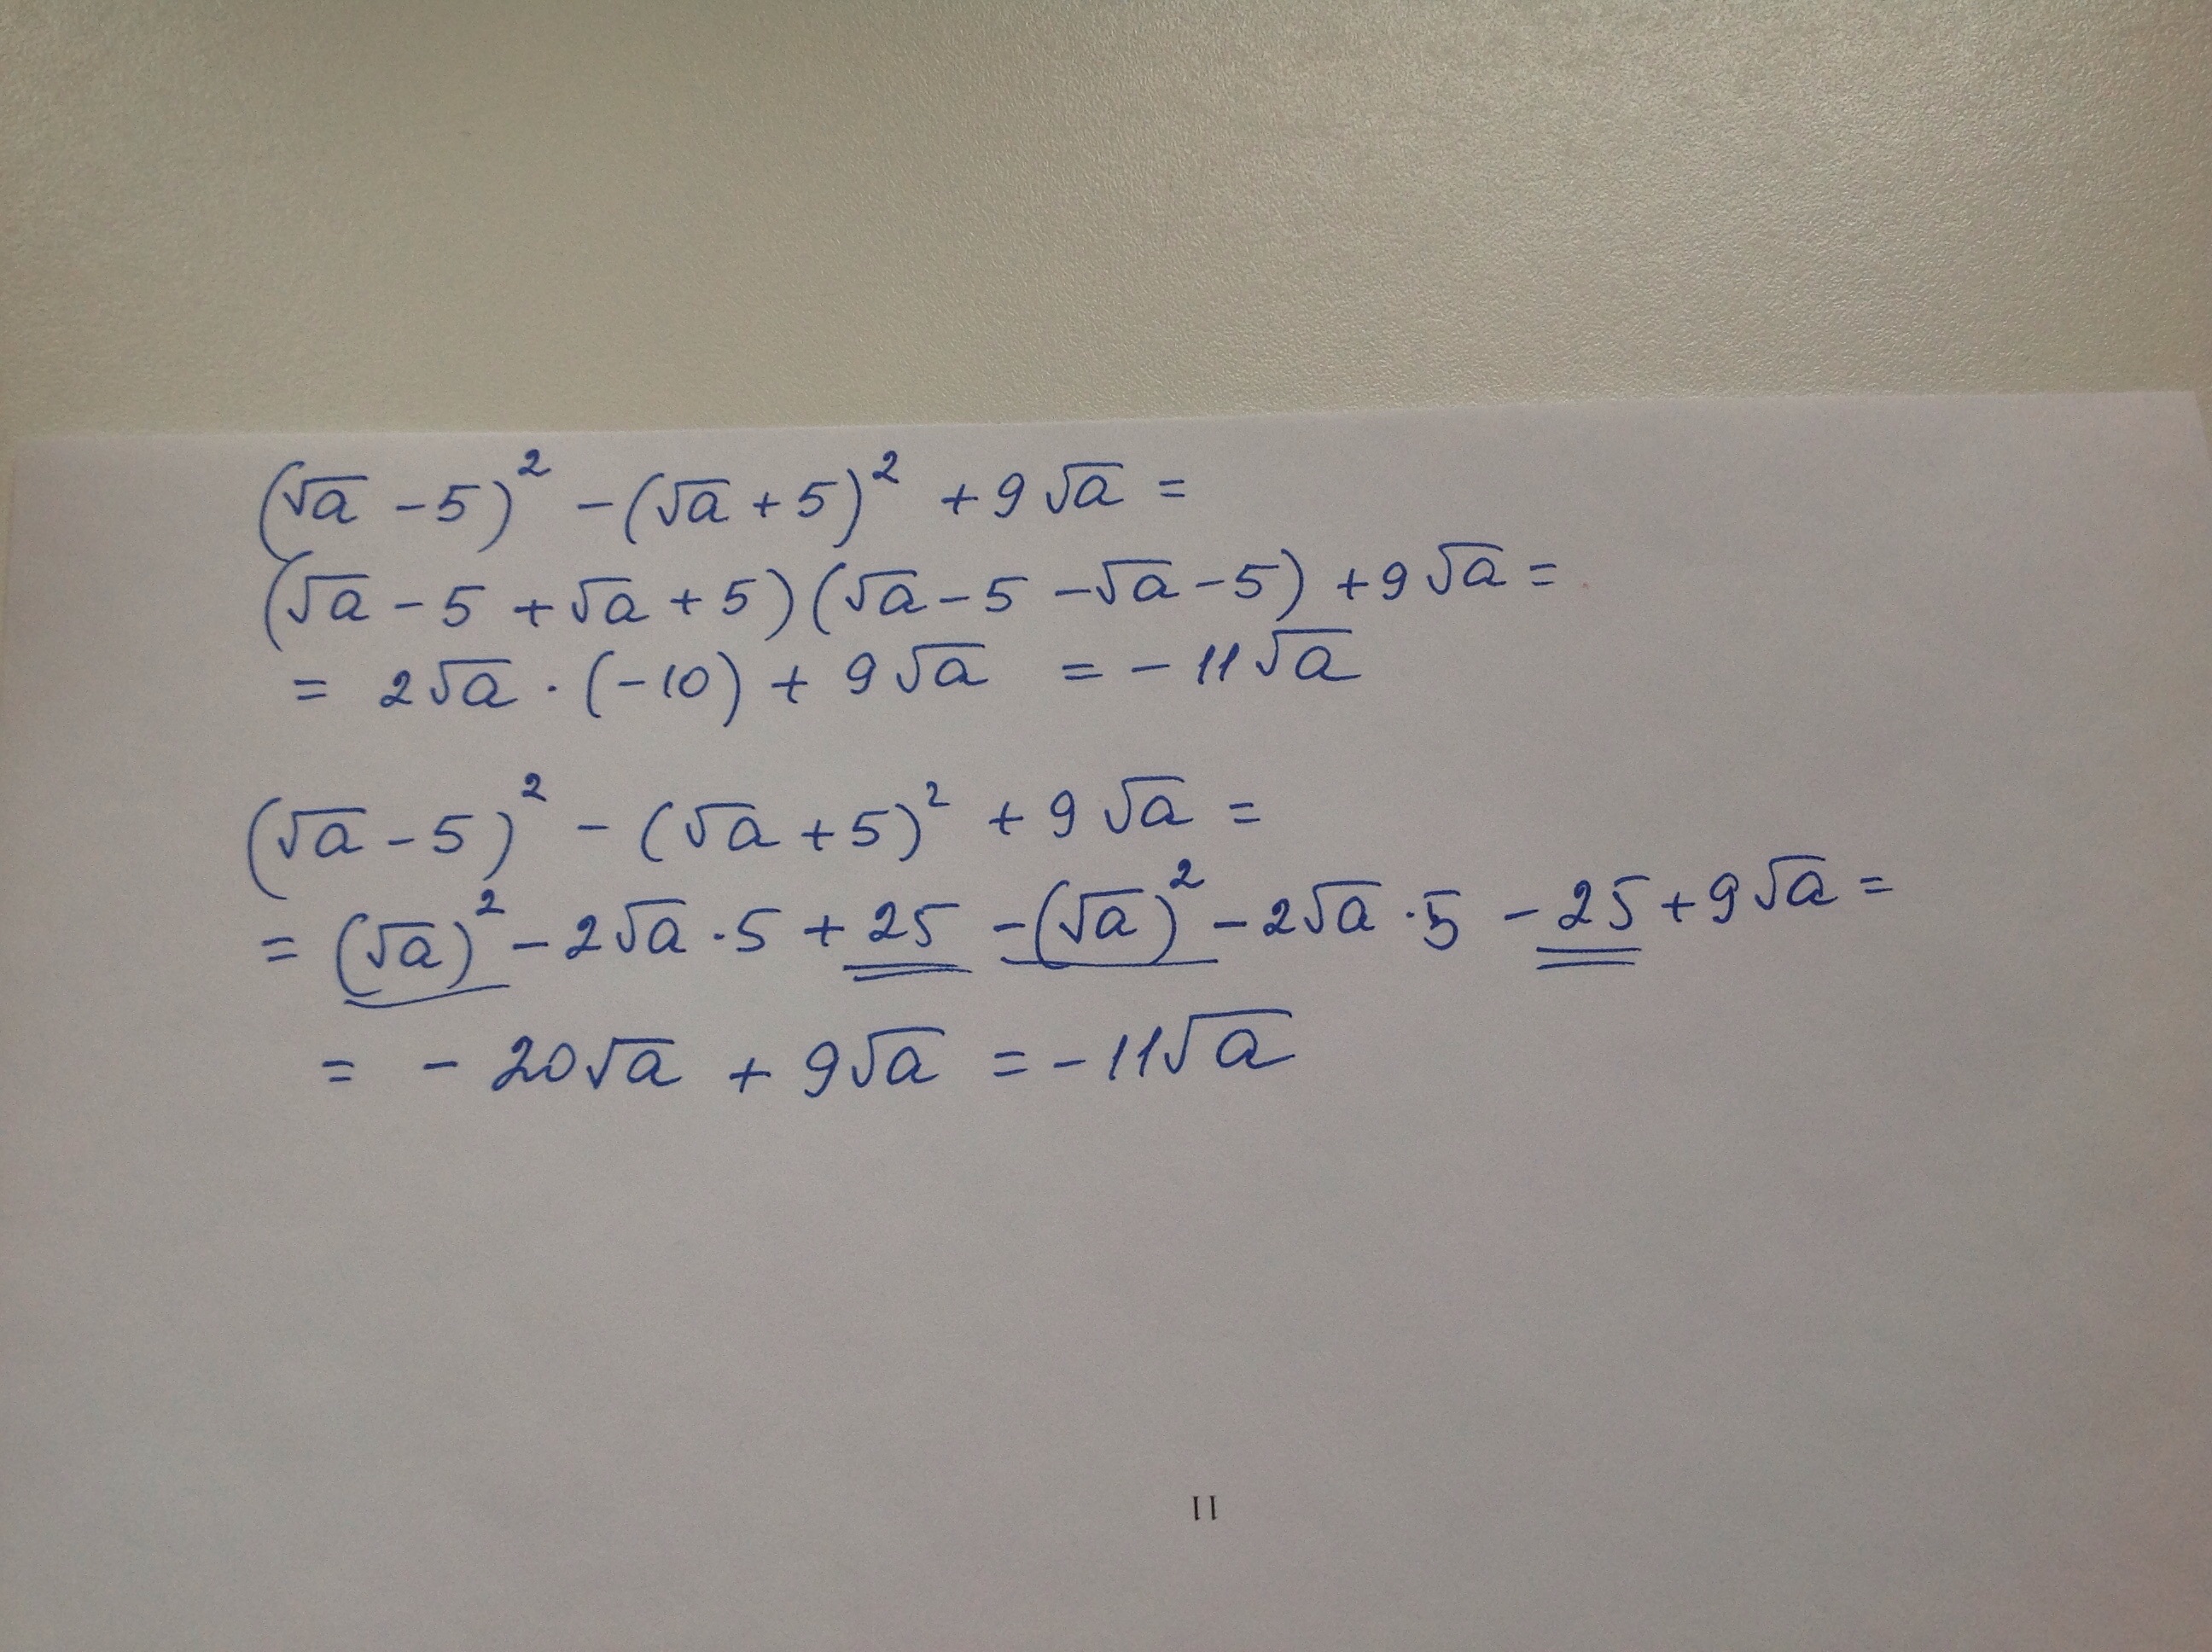 (√a - 5)² - (√a + 5)² + 9√a =
(√a - 5 + √a + 5)(√a - 5 - √a - 5) + 9√a =
= 2√a · (-10) + 9√a = - 11√a
(√a - 5)² - (√a + 5)² + 9√a =
= (√a)² - 2√a · 5 + 25 - (√a)² - 2√a · 5 - 25 + 9√a =
= - 20√a + 9√a = - 11√a
11